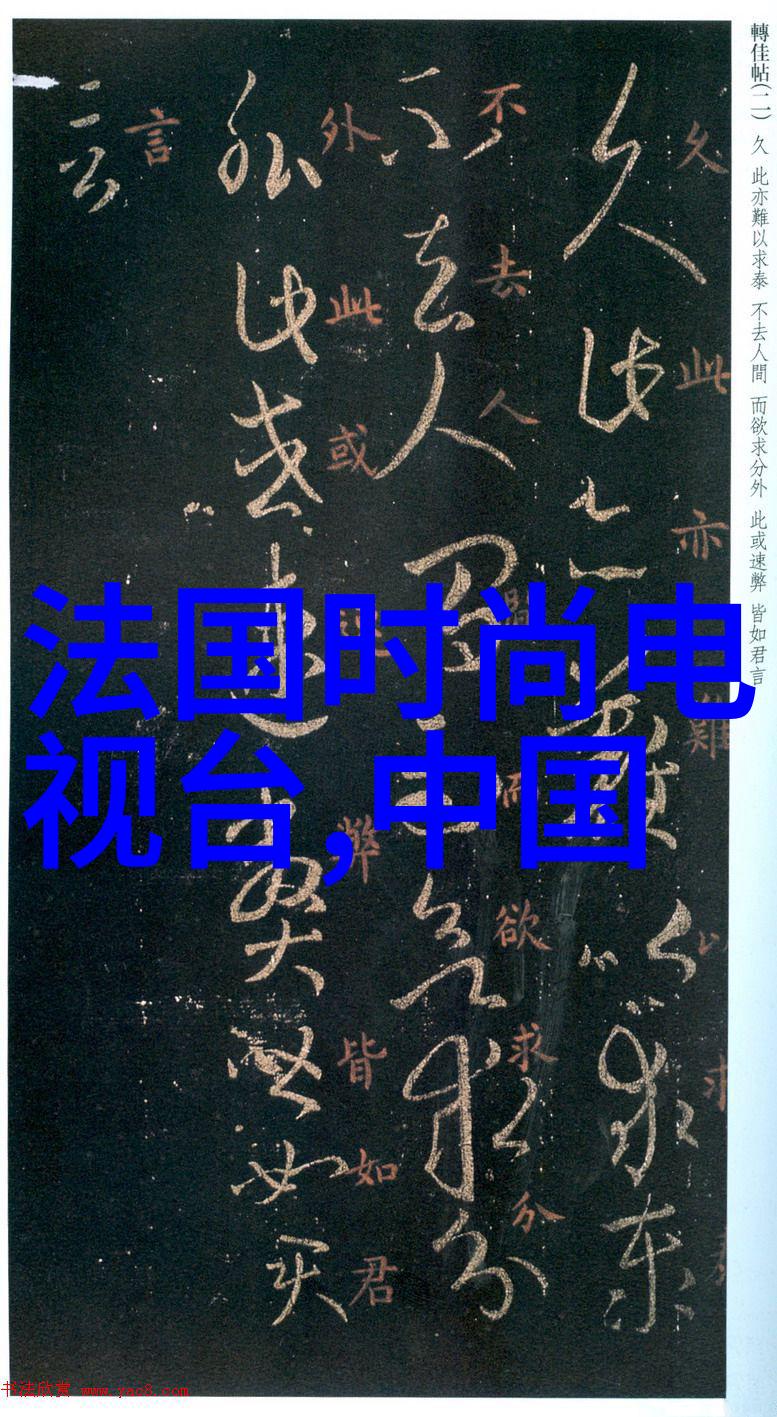 轉佳帖(二) 久 此亦難以求泰 不去人間 而欲求分外 此或速弊 皆如君言
久此亦難以求
不去人間而欲求分
外此或速弊皆如君
言
法国时尚电
视台,中国
书法欣赏 www.yac8.com